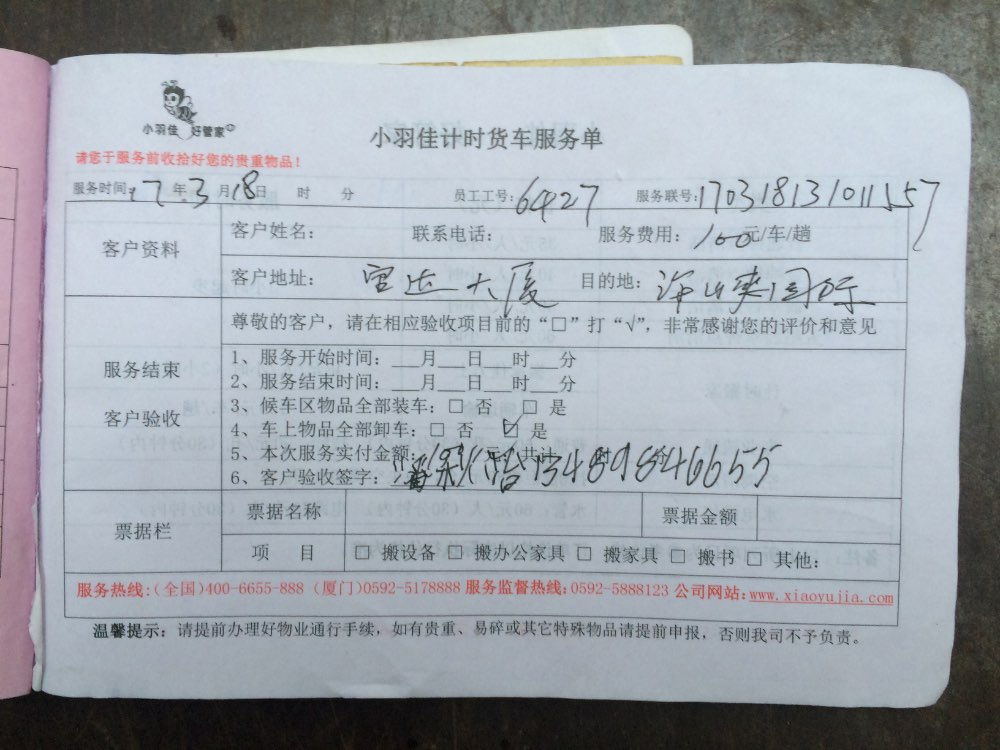 小羽佳 好管家
小羽佳计时货车服务单
请您于服务前收拾好您的贵重物品！
服务时间：17年3月18日 时 分 员工工号：6427 服务联号：170318131011557
客户资料 客户姓名： 联系电话： 服务费用：100元/车/趟
客户地址：大厦 目的地：国际
尊敬的客户，请在相应验收项目前的“□”打“√”，非常感谢您的评价和意见
服务结束
客户验收
1、服务开始时间：___月___日 时___分
2、服务结束时间：___月___日 时___分
3、候车区物品全部装车：□ 否 □ 是
4、车上物品全部卸车：□ 否 ☑ 是
5、本次服务实付金额：元 共计
6、客户验收签字：13489846655
票据栏 票据名称 票据金额
项 目 □ 搬设备 □ 搬办公家具 □ 搬家具 □ 搬书 □ 其他：
服务热线：(全国)400-6655-888 (厦门)0592-5178888 服务监督热线：0592-5888123 公司网站：www.xiaoyujia.com
温馨提示：请提前办理好物业通行手续，如有贵重、易碎或其它特殊物品请提前申报，否则我司不予负责。